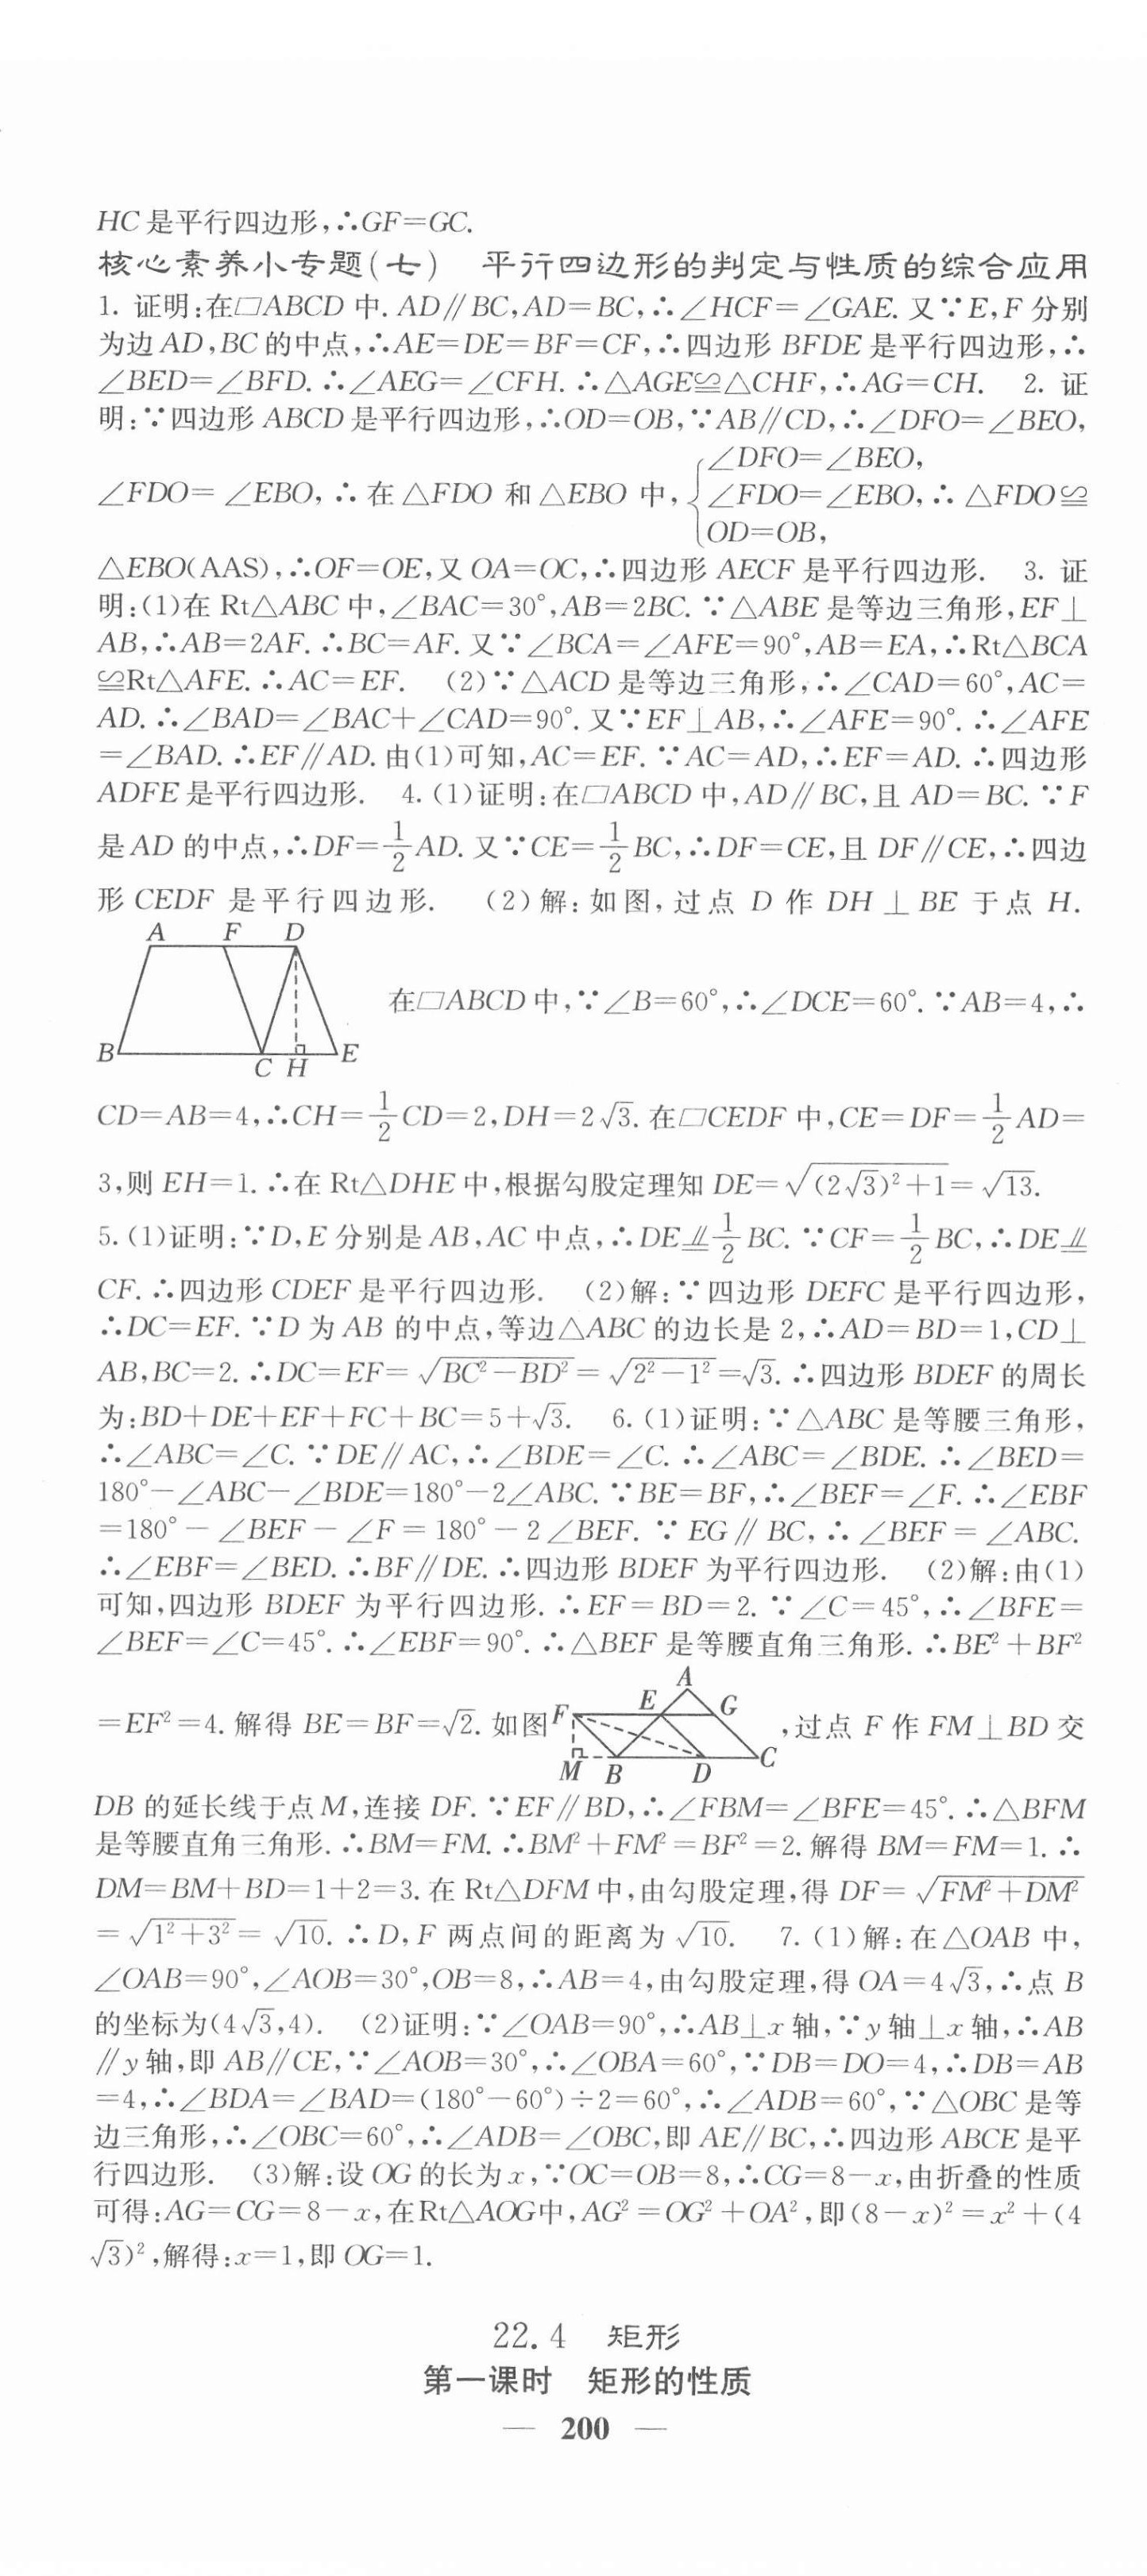 HC是平行四边形,∴GF=GC.
核心素养小专题(七) 平行四边形的判定与性质的综合应用
1. 证明:在□ABCD 中. AD∥BC,AD=BC,∴∠HCF=∠GAE. 又∵E,F 分别
为边AD,BC的中点,∴AE=DE=BF=CF,∴四边形 BFDE 是平行四边形,∴
∠BED=∠BFD. ∴∠AEG=∠CFH. ∴△AGE≌△CHF,∴AG=CH. 2. 证
明:∵四边形 ABCD是平行四边形,∴OD=OB,∵AB∥CD,∴∠DFO=∠BEO,
∠DFO=∠BEO,
∠FDO=∠EBO, ∴在△FDO 和△EBO 中,{∠FDO=∠EBO,∴△FDO≌
OD=OB,
△EBO(AAS),∴OF=OE,又 OA=OC,∴四边形 AECF 是平行四边形. 3. 证
明:(1)在 Rt△ABC 中,∠BAC=30°,AB=2BC. ∵△ABE 是等边三角形,EF⊥
AB,∴AB=2AF. ∴BC=AF. 又∵∠BCA=∠AFE=90°,AB=EA,∴Rt△BCA
≌Rt△AFE. ∴AC=EF. (2)∵△ACD 是等边三角形,∴∠CAD=60°,AC=
AD. ∴∠BAD=∠BAC+∠CAD=90°. 又∵EF⊥AB,∴∠AFE=90°. ∴∠AFE
=∠BAD. ∴EF∥AD. 由(1)可知,AC=EF. ∵AC=AD,∴EF=AD. ∴四边形
ADFE是平行四边形. 4. (1)证明:在□ABCD 中,AD∥BC,且 AD=BC. ∵F
是AD 的中点,∴DF=1/2AD. 又∵CE=1/2BC,∴DF=CE,且 DF∥CE,∴四边
形 CEDF 是平行四边形. (2)解:如图,过点 D 作 DH⊥BE 于点 H.
A F D
在□ABCD中,∵∠B=60°,∴∠DCE=60°. ∵AB=4,∴
B C H E
CD=AB=4,∴CH=1/2CD=2,DH=2√3. 在□CEDF 中,CE=DF=1/2AD=
3,则 EH=1. ∴在 Rt△DHE 中,根据勾股定理知 DE=√((2√3)²+1)=√13.
5. (1)证明:∵D,E 分别是AB,AC 中点,∴DE⫽1/2BC. ∵CF=1/2BC,∴DE⫽
CF. ∴四边形 CDEF 是平行四边形. (2)解:∵四边形 DEFC 是平行四边形,
∴DC=EF. ∵D 为 AB 的中点,等边△ABC 的边长是 2,∴AD=BD=1,CD⊥
AB,BC=2. ∴DC=EF=√(BC²-BD²)=√(2²-1²)=√3. ∴四边形 BDEF 的周长
为:BD+DE+EF+FC+BC=5+√3. 6. (1)证明:∵△ABC 是等腰三角形,
∴∠ABC=∠C. ∵DE∥AC,∴∠BDE=∠C. ∴∠ABC=∠BDE. ∴∠BED=
180°-∠ABC-∠BDE=180°-2∠ABC. ∵BE=BF,∴∠BEF=∠F. ∴∠EBF
=180°-∠BEF-∠F=180°-2∠BEF. ∵EG∥BC, ∴∠BEF=∠ABC.
∴∠EBF=∠BED. ∴BF∥DE. ∴四边形 BDEF 为平行四边形. (2)解:由(1)
可知,四边形 BDEF 为平行四边形. ∴EF=BD=2. ∵∠C=45°,∴∠BFE=
∠BEF=∠C=45°. ∴∠EBF=90°. ∴△BEF 是等腰直角三角形. ∴BE²+BF²
A
=EF²=4. 解得 BE=BF=√2. 如图 F E G ,过点 F 作 FM⊥BD 交
M B D C
DB 的延长线于点M,连接 DF. ∵EF∥BD,∴∠FBM=∠BFE=45°. ∴△BFM
是等腰直角三角形. ∴BM=FM. ∴BM²+FM²=BF²=2. 解得 BM=FM=1. ∴
DM=BM+BD=1+2=3. 在 Rt△DFM 中,由勾股定理,得 DF=√(FM²+DM²)
=√(1²+3²)=√10. ∴D,F 两点间的距离为√10. 7. (1)解:在△OAB 中,
∠OAB=90°,∠AOB=30°,OB=8,∴AB=4,由勾股定理,得 OA=4√3,∴点 B
的坐标为(4√3,4). (2)证明:∵∠OAB=90°,∴AB⊥x 轴,∵y 轴⊥x 轴,∴AB
∥y轴,即 AB∥CE,∵∠AOB=30°,∴∠OBA=60°,∵DB=DO=4,∴DB=AB
=4,∴∠BDA=∠BAD=(180°-60°)÷2=60°,∴∠ADB=60°,∵△OBC 是等
边三角形,∴∠OBC=60°,∴∠ADB=∠OBC,即 AE∥BC,∴四边形 ABCE 是平
行四边形. (3)解:设 OG 的长为x,∵OC=OB=8,∴CG=8-x,由折叠的性质
可得:AG=CG=8-x,在Rt△AOG中,AG²=OG²+OA²,即(8-x)²=x²+(4
√3)²,解得:x=1,即 OG=1.
22.4 矩形
第一课时 矩形的性质
— 200 —